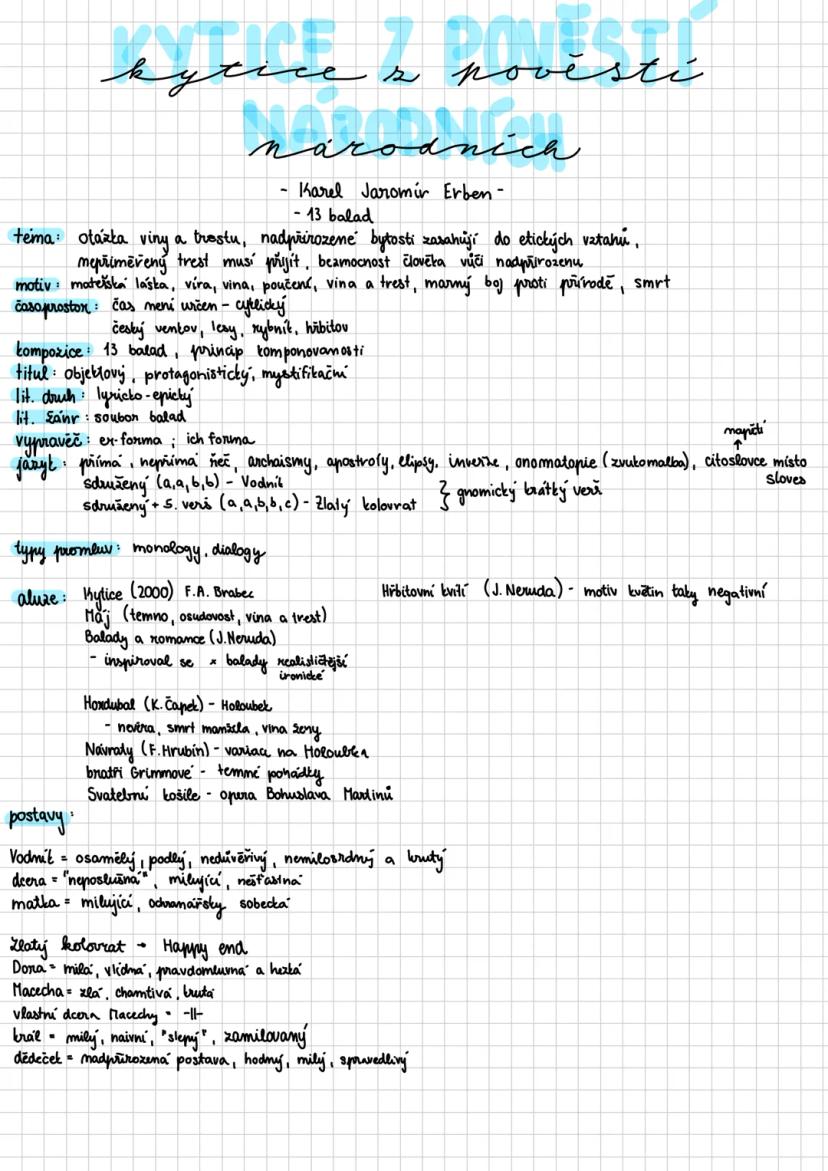 KYTICE Z POVĚSTÍ
kytice z pověstí
NÁRODNÍCH
národních
- Karel Jaromír Erben -
- 13 balad
téma: otázka viny a trestu, nadpřirozené bytosti zasahují do etických vztahů,
nepřiměřený trest musí přijít, bezmocnost člověka vůči nadpřirozenu
motiv: mateřská láska, víra, vina, poučení, vina a trest, marný boj proti přírodě, smrt
časoprostor: čas není určen - cyklický
český venkov, lesy, rybník, hřbitov
kompozice: 13 balad, princip komponovanosti
titul: objektový, protagonistický, mystifikační
lit. druh: lyricko-epický
lit. žánr: soubor balad
vypravěč: er-forma ; ich forma
napětí
↑
jazyk: přímá, nepřímá řeč, archaismy, apostrofy, elipsy, inverze, onomatopie (zvukomalba), citoslovce místo
sloves
sdružený (a,a,b,b) - Vodník
sdružený + 5. verš (a,a,b,b,c) - Zlatý kolovrat } gnomický krátký verš
typy promluv: monology, dialogy
aluze: Kytice (2000) F.A. Brabec
Hřbitovní kvítí (J. Neruda) - motiv květin taky negativní
Máj (temno, osudovost, vina a trest)
Balady a romance (J.Neruda)
- inspiroval se × balady realističtější
ironické
Hordubal (K. Čapek) - Holoubek
- nevěra, smrt manžela, vina ženy
Návraty (F. Hrubín) - variace na Holoubka
bratři Grimmové - temné pohádky
Svatební košile - opera Bohuslava Martinů
postavy:
Vodník = osamělý, podlý, nedůvěřivý, nemilosrdný a krutý
dcera = "neposlušná", milující, nešťastná
matka = milující, ochranářsky sobecká
Zlatý kolovrat - Happy end
Dora = milá, vlídná, pravdomluvná a hezká
Macecha = zlá, chamtivá, krutá
vlastní dcera Macechy = -||-
král = milý, naivní, "slepý", zamilovaný
dědeček = nadpřirozená postava, hodný, milý, spravedlivý